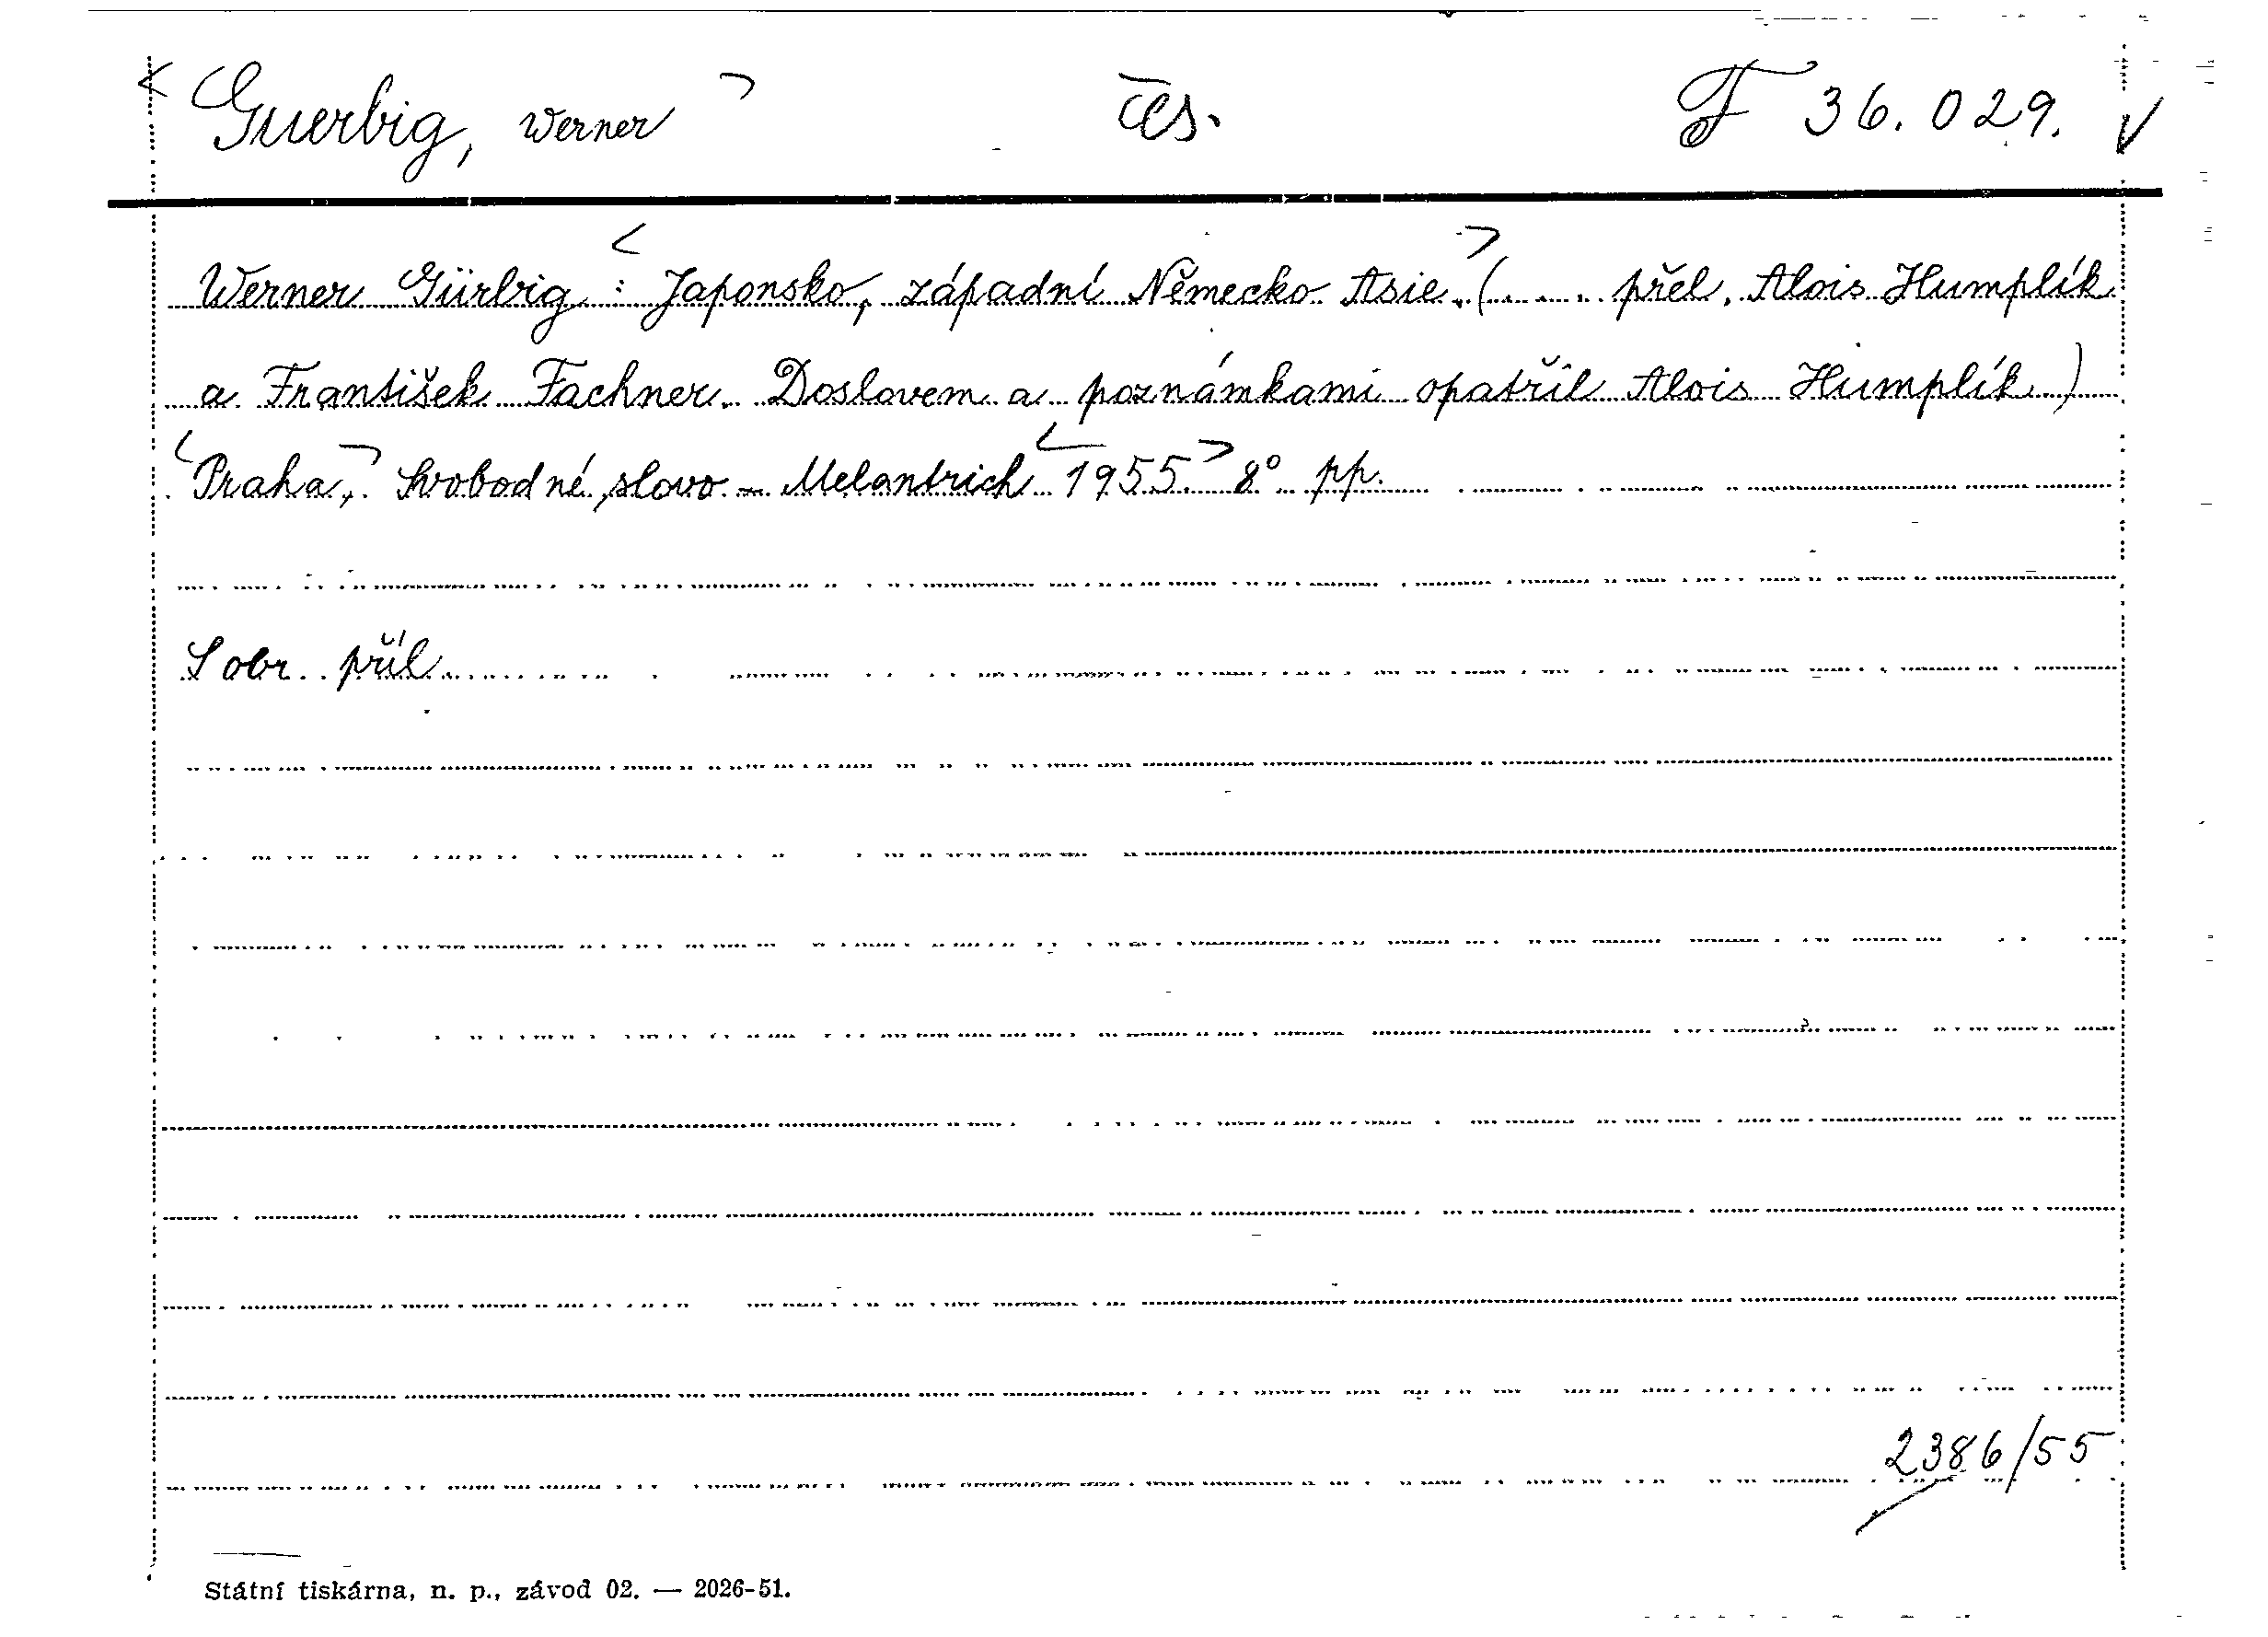 < Guerbig, Werner > čes. F 36.029. √
Werner Gürbig : < Japonsko, západní Německo Asie. > (..... přel. Alois Humplík
a František Fachner. Doslovem a poznámkami opatřil Alois Humplík)
< Praha, > Svobodné slovo - Melantrich < 1955 > 8° pp.
S obr. příl.
2386/55
Státní tiskárna, n. p., závod 02. — 2026-51.